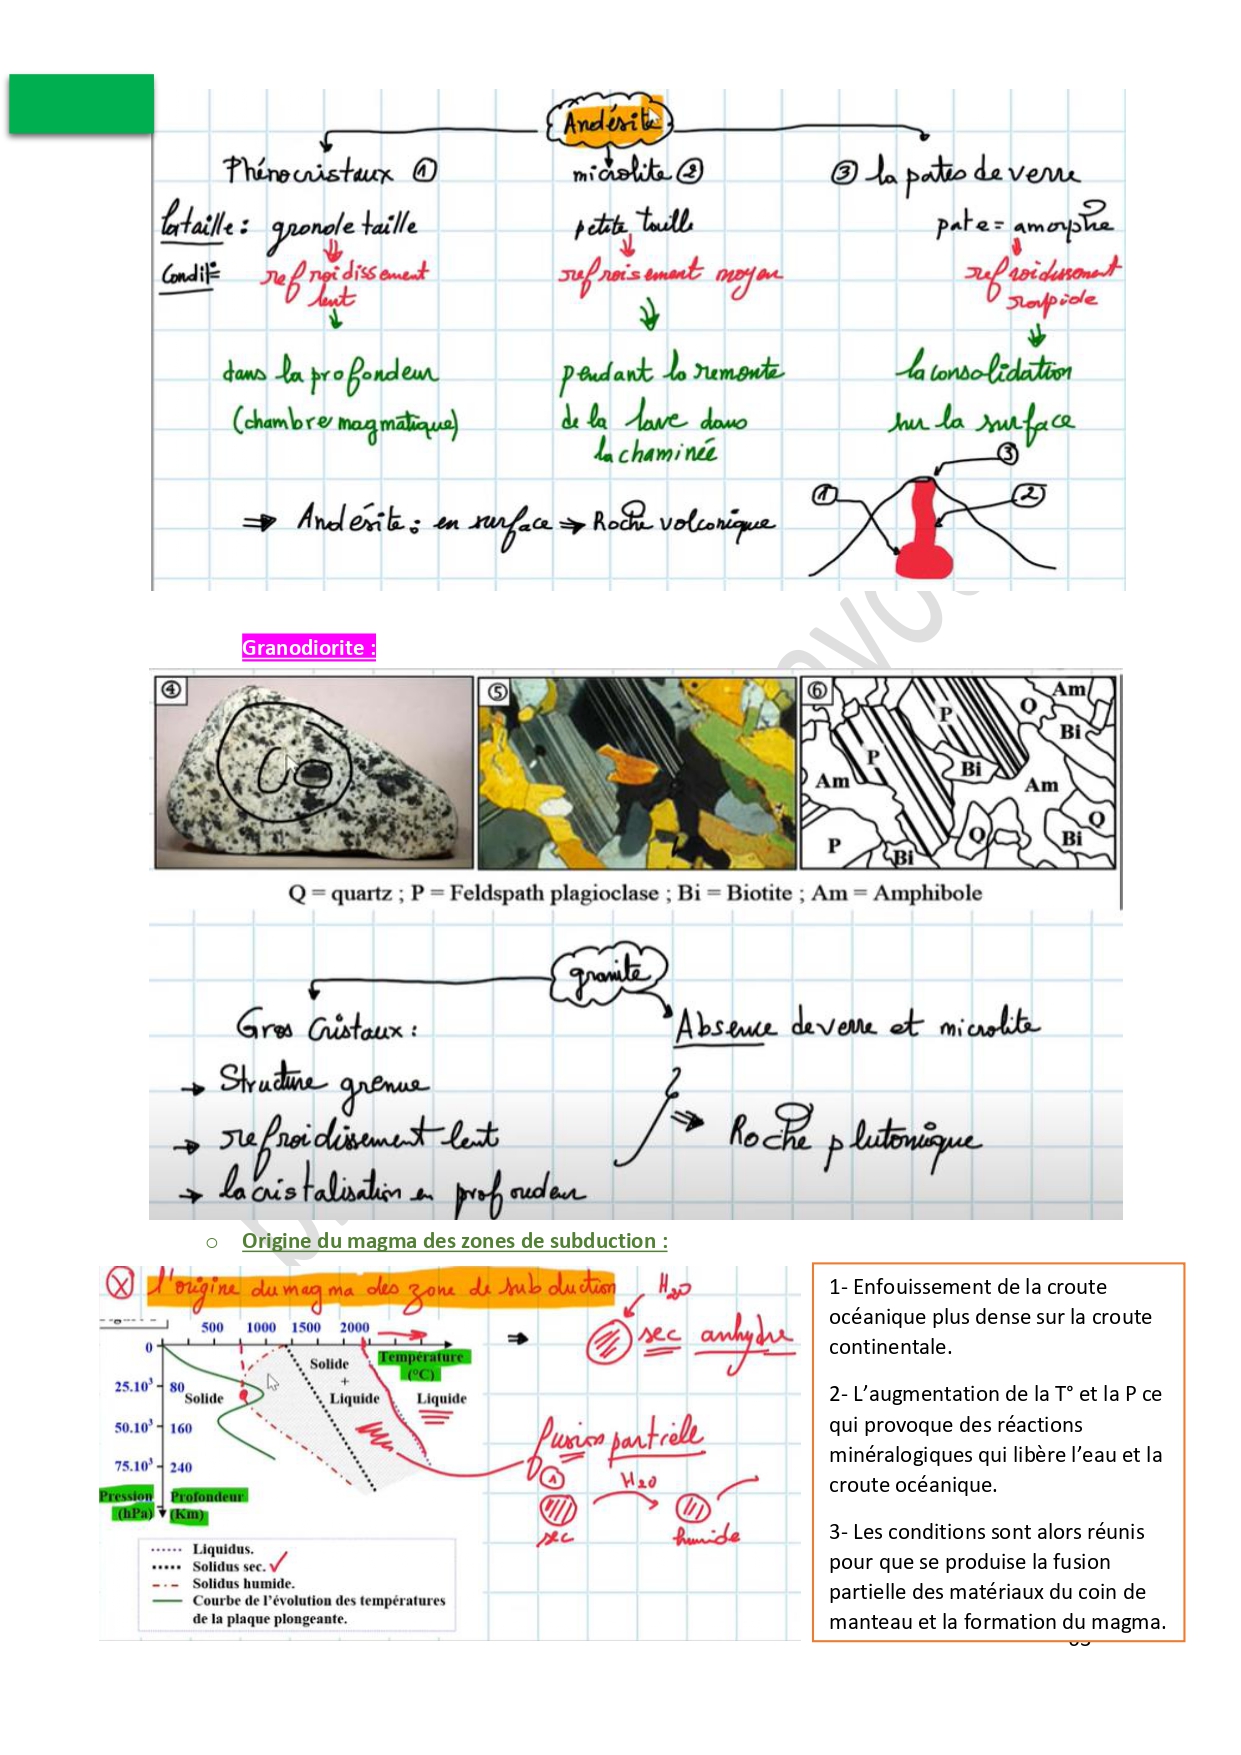 Andésite
Phénocristaux ① microlite ② ③ la pates de verre
la taille : grande taille petite taille pate = amorphe
Condit° refroidissement lent refroisement moyen refroidissement rapide
dans la profondeur pendant la remonte la consolidation
(chambre magmatique) de la lave dans sur la surface
la chaminée
③
① ②
⇒ Andésite : en surface ⇒ Roche volcanique
Granodiorite :
④ ⑤ ⑥
Am
Q
P Bi
P Bi
Am Am
Q Q
P Bi Bi
Q = quartz ; P = Feldspath plagioclase ; Bi = Biotite ; Am = Amphibole
granite
Gros Cristaux : Absence de verre et microlite
→ Structure grenue
→ refroidissement lent ⇒ Roche plutonique
→ la cristalisation en profondeur
o Origine du magma des zones de subduction :
l'origine du magma des zone de subduction H2O
500 1000 1500 2000 ⇒ sec anhydre
0 Solide Température
+ (°C)
25.10³ 80 Solide Liquide Liquide
50.10³ 160 fusion partielle
75.10³ 240 ① H2O
Pression Profondeur
(hPa) (Km) sec humide
Liquidus.
Solidus sec.
Solidus humide.
Courbe de l'évolution des températures
de la plaque plongeante.
1- Enfouissement de la croute
océanique plus dense sur la croute
continentale.
2- L'augmentation de la T° et la P ce
qui provoque des réactions
minéralogiques qui libère l'eau et la
croute océanique.
3- Les conditions sont alors réunis
pour que se produise la fusion
partielle des matériaux du coin de
manteau et la formation du magma.